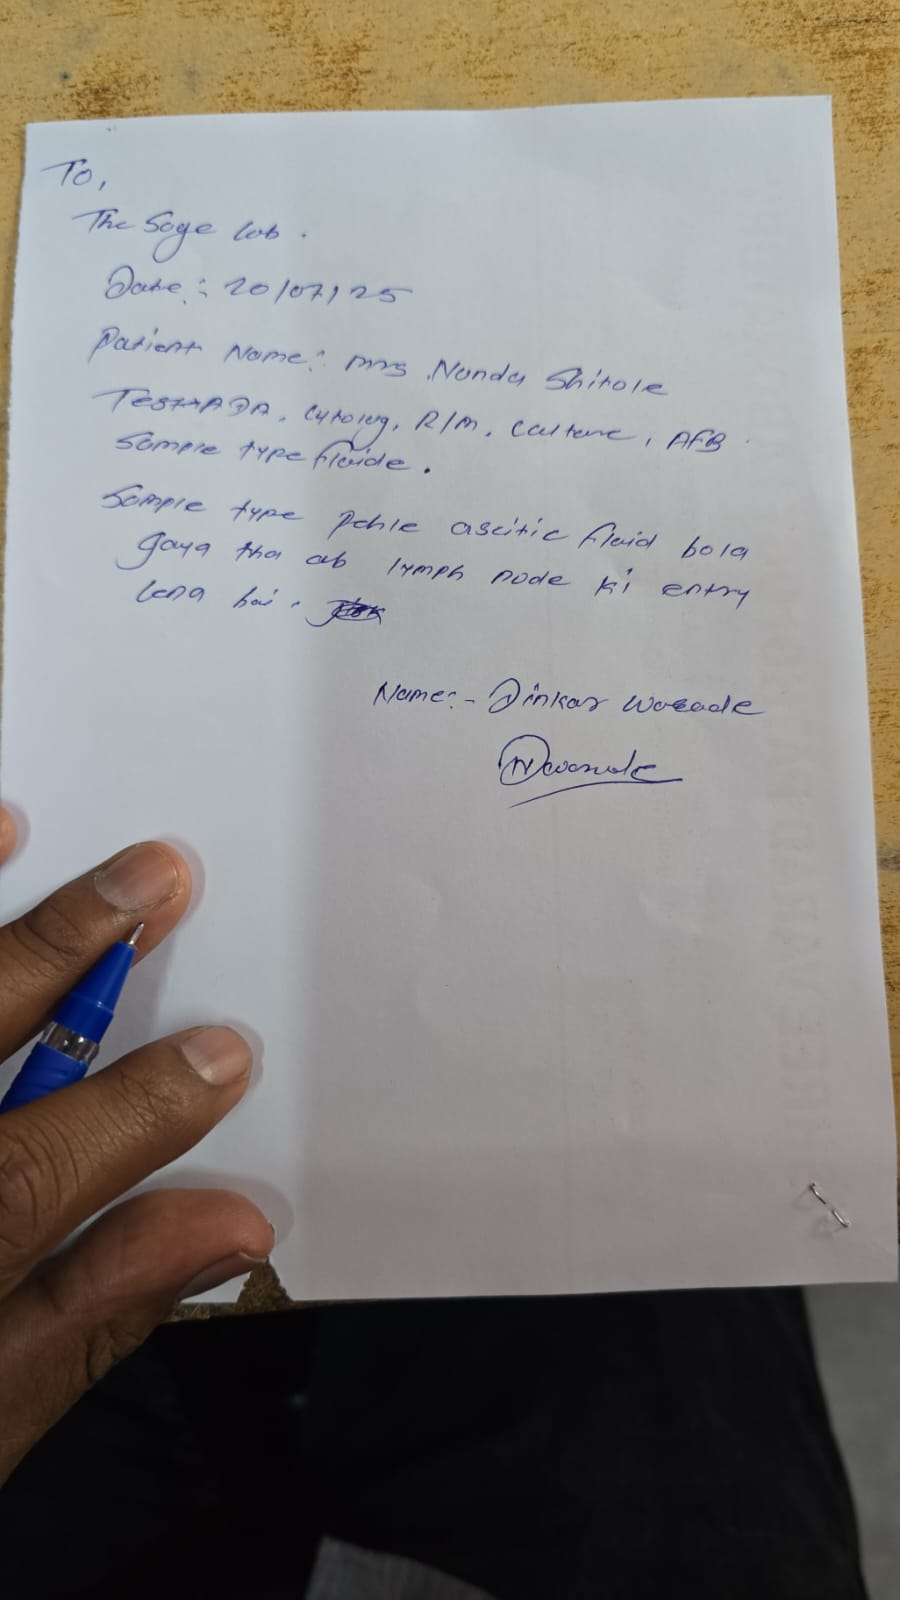 To,
The Sage Lab.
Date:- 20/07/25
Patient Name:- Mrs. Nanda Shitole
Test→ADA, Cytology, R/M, Culture, AFB.
Sample type fluide.
Sample type pehle ascitic fluid bola
gaya tha ab lymph node ki entry
lena hai.
Name:- Dinkar